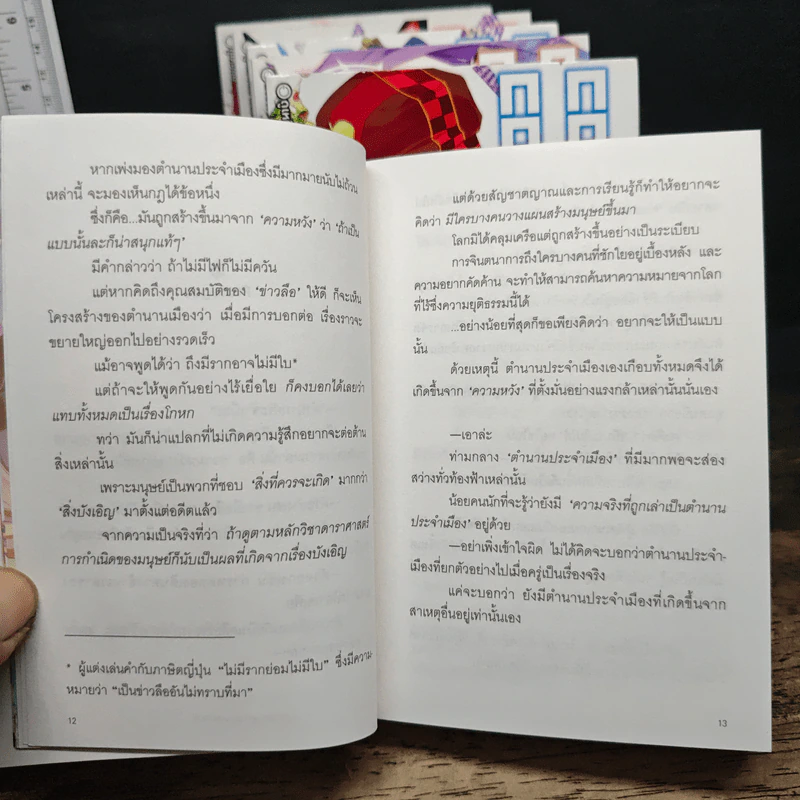 หากเพ่งมองตำนานประจำเมืองซึ่งมีมากมายนับไม่ถ้วน
เหล่านี้ จะมองเห็นกฎได้ข้อหนึ่ง
ซึ่งก็คือ...มันถูกสร้างขึ้นมาจาก ‘ความหวัง’ ว่า ‘ถ้าเป็น
แบบนั้นละก็น่าสนุกแท้ๆ’
มีคำกล่าวว่า ถ้าไม่มีไฟก็ไม่มีควัน
แต่หากคิดถึงคุณสมบัติของ ‘ข่าวลือ’ ให้ดี ก็จะเห็น
โครงสร้างของตำนานเมืองว่า เมื่อมีการบอกต่อ เรื่องราวจะ
ขยายใหญ่ออกไปอย่างรวดเร็ว
แม้อาจพูดได้ว่า ถึงมีรากอาจไม่มีใบ*
แต่ถ้าจะให้พูดกันอย่างไร้เยื่อใย ก็คงบอกได้เลยว่า
แทบทั้งหมดเป็นเรื่องโกหก
ทว่า มันก็น่าแปลกที่ไม่เกิดความรู้สึกอยากจะต่อต้าน
สิ่งเหล่านั้น
เพราะมนุษย์เป็นพวกที่ชอบ ‘สิ่งที่ควรจะเกิด’ มากกว่า
‘สิ่งบังเอิญ’ มาตั้งแต่อดีตแล้ว
จากความเป็นจริงที่ว่า ถ้าดูตามหลักวิชาดาราศาสตร์
การกำเนิดของมนุษย์ก็นับเป็นผลที่เกิดจากเรื่องบังเอิญ
* ผู้แต่งเล่นคำกับภาษิตญี่ปุ่น “ไม่มีรากย่อมไม่มีใบ” ซึ่งมีความ-
หมายว่า “เป็นข่าวลืออันไม่ทราบที่มา”
12
แต่ด้วยสัญชาตญาณและการเรียนรู้ก็ทำให้อยากจะ
คิดว่า มีใครบางคนวางแผนสร้างมนุษย์ขึ้นมา
โลกมิได้คลุมเครือแต่ถูกสร้างขึ้นอย่างเป็นระเบียบ
การจินตนาการถึงใครบางคนที่ชักใยอยู่เบื้องหลัง และ
ความอยากคัดค้าน จะทำให้สามารถค้นหาความหมายจากโลก
ที่ไร้ซึ่งความยุติธรรมนี้ได้
...อย่างน้อยที่สุดก็ขอเพียงคิดว่า อยากจะให้เป็นแบบ
นั้น
ด้วยเหตุนี้ ตำนานประจำเมืองเองเกือบทั้งหมดจึงได้
เกิดขึ้นจาก ‘ความหวัง’ ที่ตั้งมั่นอย่างแรงกล้าเหล่านั้นนั่นเอง
—เอาล่ะ
ท่ามกลาง ‘ตำนานประจำเมือง’ ที่มีมากพอจะส่อง
สว่างทั่วท้องฟ้าเหล่านั้น
น้อยคนนักที่จะรู้ว่ายังมี ‘ความจริงที่ถูกเล่าเป็นตำนาน
ประจำเมือง’ อยู่ด้วย
—อย่าเพิ่งเข้าใจผิด ไม่ได้คิดจะบอกว่าตำนานประจำ-
เมืองที่ยกตัวอย่างไปเมื่อครู่เป็นเรื่องจริง
แค่จะบอกว่า ยังมีตำนานประจำเมืองที่เกิดขึ้นจาก
สาเหตุอื่นอยู่เท่านั้นเอง
13